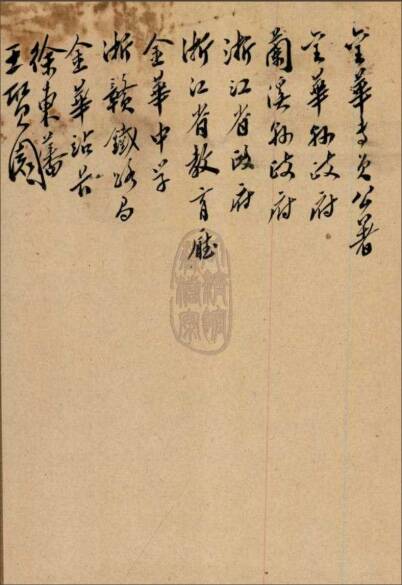 金華专员公署
金華縣政府
蘭溪縣政府
浙江省政府
浙江省教育廳
金華中学
浙贛鐵路局
金華站長
徐東藩
王賢